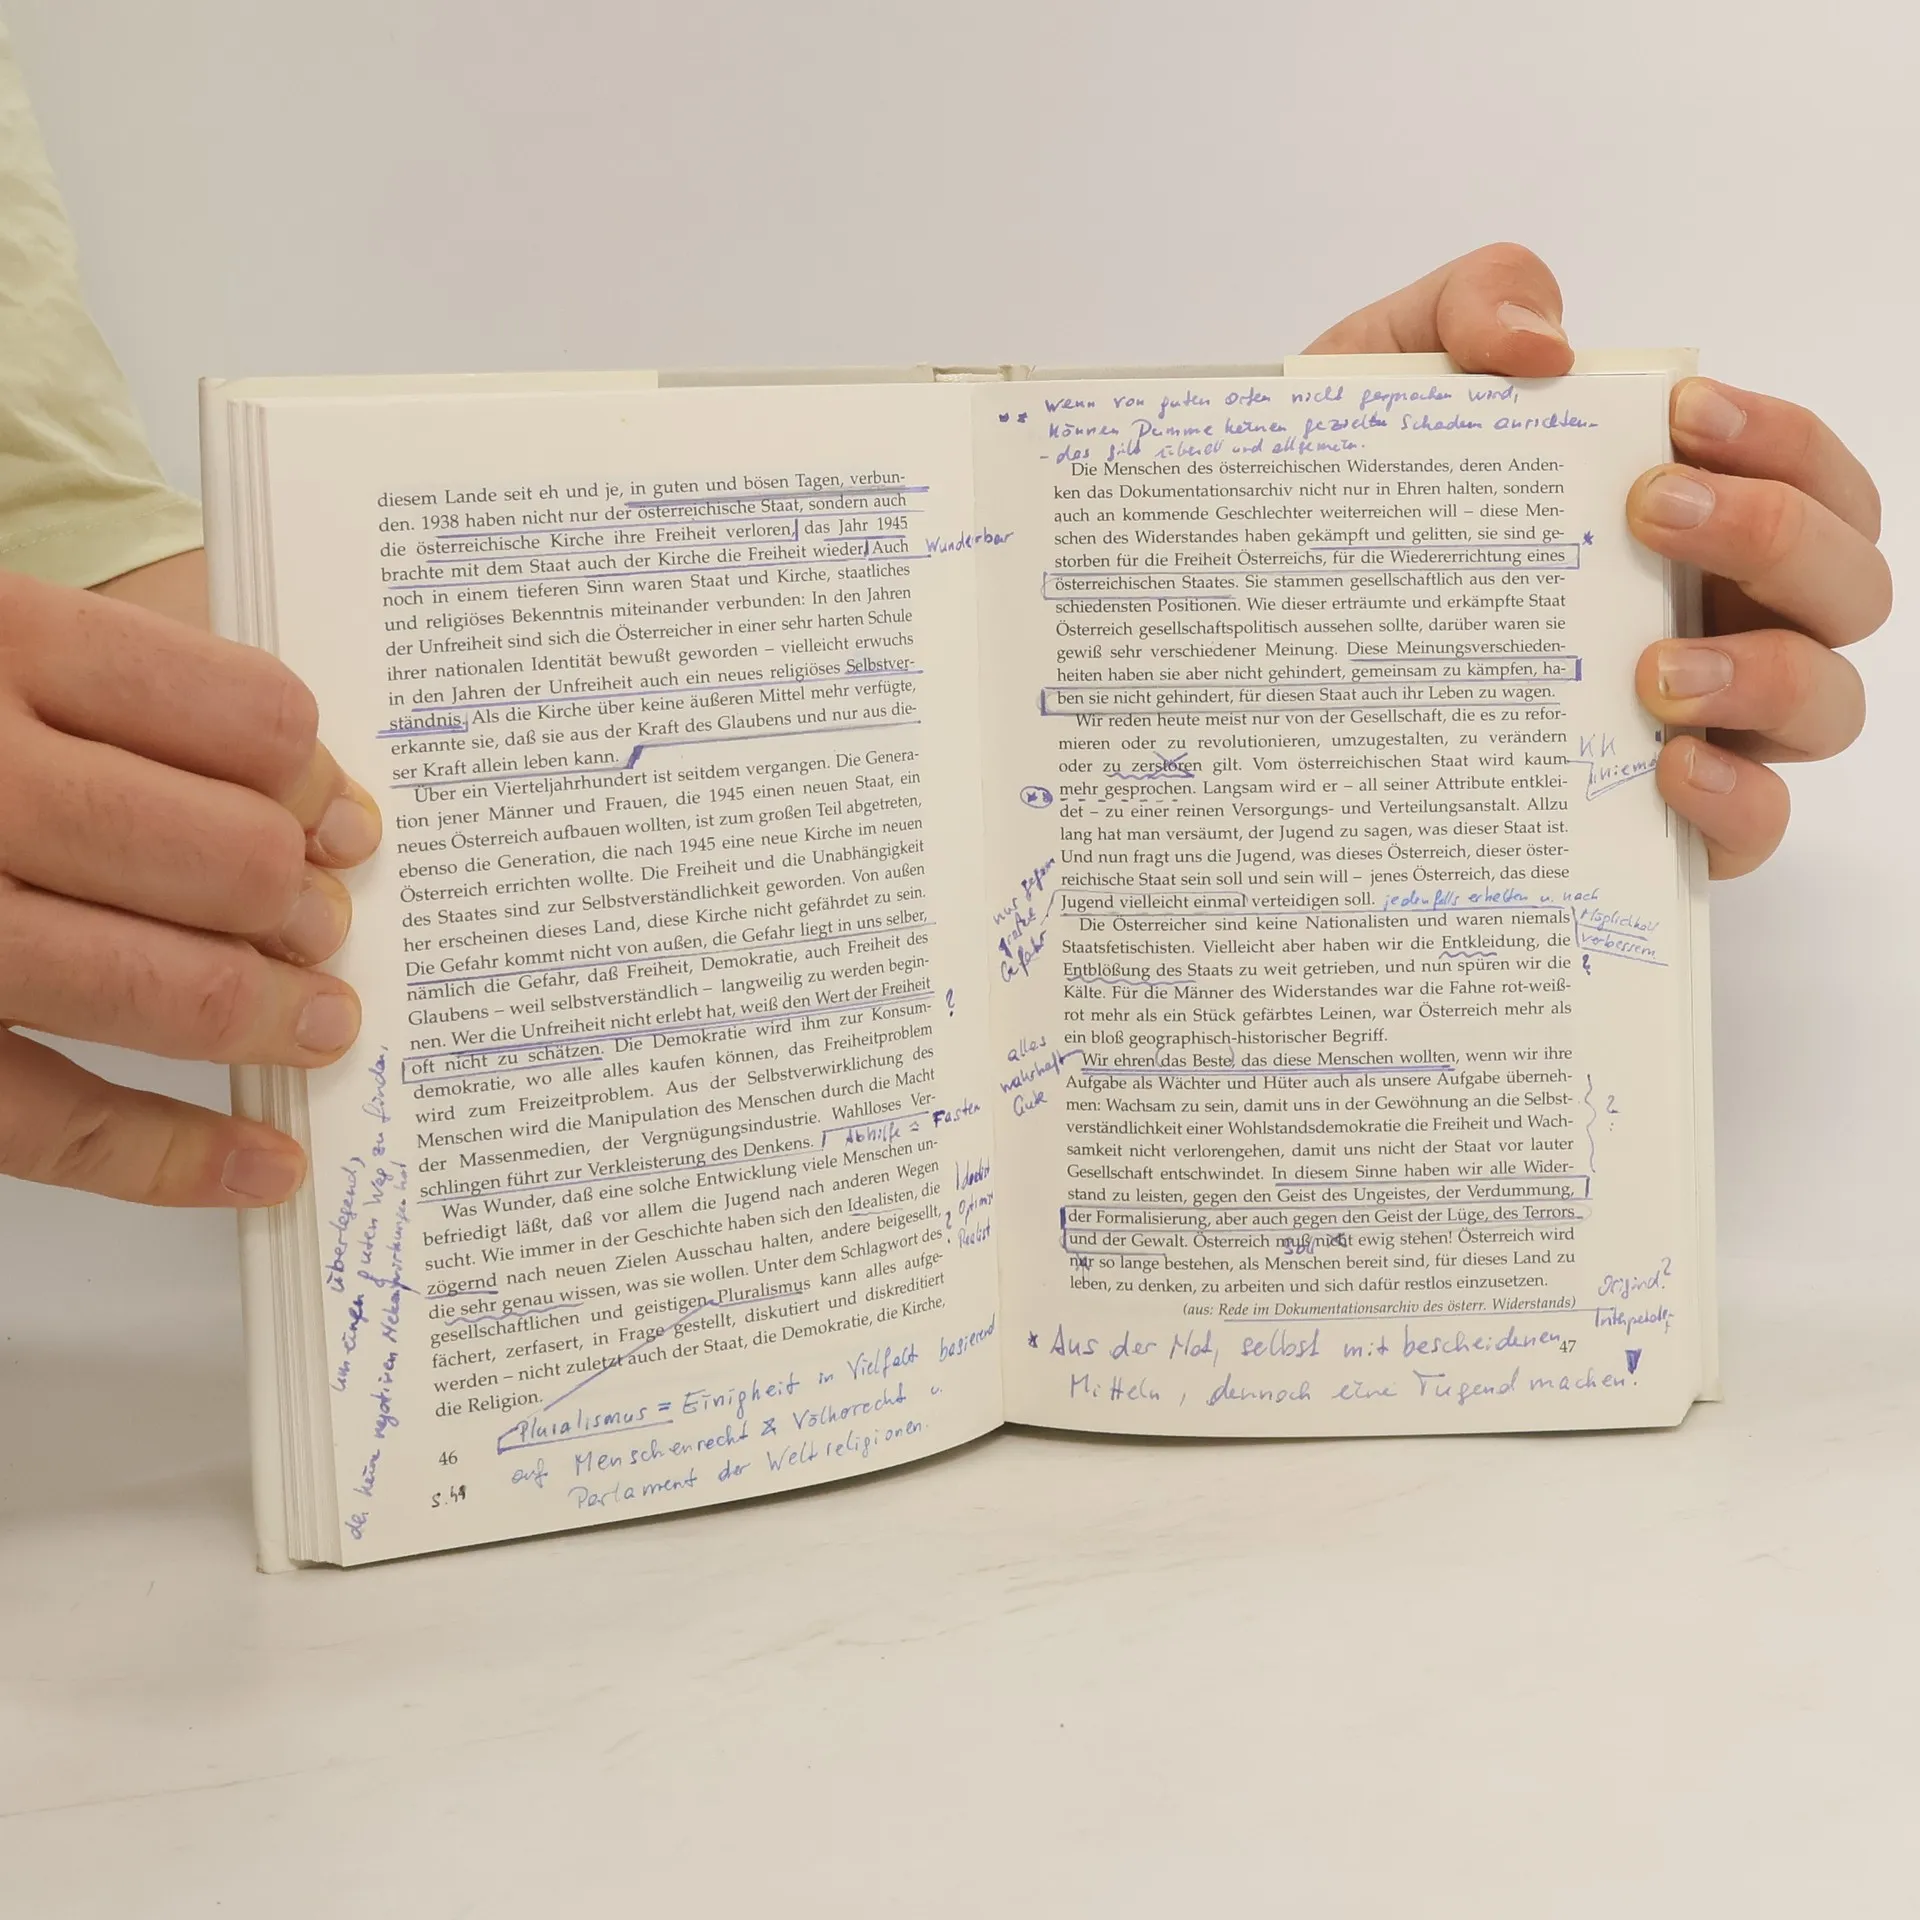 diesem Lande seit eh und je, in guten und bösen Tagen, verbun-
den. 1938 haben nicht nur der österreichische Staat, sondern auch
die österreichische Kirche ihre Freiheit verloren, das Jahr 1945
brachte mit dem Staat auch der Kirche die Freiheit wieder. Auch
Wunderbar
noch in einem tieferen Sinn waren Staat und Kirche, staatliches
und religiöses Bekenntnis miteinander verbunden: In den Jahren
der Unfreiheit sind sich die Österreicher in einer sehr harten Schule
ihrer nationalen Identität bewußt geworden – vielleicht erwuchs
in den Jahren der Unfreiheit auch ein neues religiöses Selbstver-
ständnis. Als die Kirche über keine äußeren Mittel mehr verfügte,
erkannte sie, daß sie aus der Kraft des Glaubens und nur aus die-
ser Kraft allein leben kann.
Über ein Vierteljahrhundert ist seitdem vergangen. Die Genera-
tion jener Männer und Frauen, die 1945 einen neuen Staat, ein
neues Österreich aufbauen wollten, ist zum großen Teil abgetreten,
ebenso die Generation, die nach 1945 eine neue Kirche im neuen
Österreich errichten wollte. Die Freiheit und die Unabhängigkeit
des Staates sind zur Selbstverständlichkeit geworden. Von außen
her erscheinen dieses Land, diese Kirche nicht gefährdet zu sein.
Die Gefahr kommt nicht von außen, die Gefahr liegt in uns selber,
nämlich die Gefahr, daß Freiheit, Demokratie, auch Freiheit des
Glaubens – weil selbstverständlich – langweilig zu werden begin-
nen. Wer die Unfreiheit nicht erlebt hat, weiß den Wert der Freiheit
?
oft nicht zu schätzen. Die Demokratie wird ihm zur Konsum-
demokratie, wo alle alles kaufen können, das Freiheitproblem
wird zum Freizeitproblem. Aus der Selbstverwirklichung des
Menschen wird die Manipulation des Menschen durch die Macht
der Massenmedien, der Vergnügungsindustrie. Wahlloses Ver-
schlingen führt zur Verkleisterung des Denkens.
Abhilfe = Fasten
Was Wunder, daß eine solche Entwicklung viele Menschen un-
befriedigt läßt, daß vor allem die Jugend nach anderen Wegen
sucht. Wie immer in der Geschichte haben sich den Idealisten, die
zögernd nach neuen Zielen Ausschau halten, andere beigesellt,
die sehr genau wissen, was sie wollen. Unter dem Schlagwort des
gesellschaftlichen und geistigen Pluralismus kann alles aufge-
fächert, zerfasert, in Frage gestellt, diskutiert und diskreditiert
werden – nicht zuletzt auch der Staat, die Demokratie, die Kirche,
die Religion.
Idealist
? Optimist
Realist
Pluralismus = Einigheit in Vielfalt basierend
auf Menschenrecht & Völkerecht u.
Parlament der Weltreligionen.
46
S. 49
überlegend,
um einen guten Weg zu finden,
der keine negativen Nebenwirkungen hat
wenn von guten Orten nicht gesprochen wird,
können Dumme keinen gezielten Schaden anrichten
- das gilt überall und allgemein.
Die Menschen des österreichischen Widerstandes, deren Anden-
ken das Dokumentationsarchiv nicht nur in Ehren halten, sondern
auch an kommende Geschlechter weiterreichen will – diese Men-
schen des Widerstandes haben gekämpft und gelitten, sie sind ge-
storben für die Freiheit Österreichs, für die Wiedererrichtung eines
österreichischen Staates. Sie stammen gesellschaftlich aus den ver-
schiedensten Positionen. Wie dieser erträumte und erkämpfte Staat
Österreich gesellschaftspolitisch aussehen sollte, darüber waren sie
gewiß sehr verschiedener Meinung. Diese Meinungsverschieden-
heiten haben sie aber nicht gehindert, gemeinsam zu kämpfen, ha-
ben sie nicht gehindert, für diesen Staat auch ihr Leben zu wagen.
Wir reden heute meist nur von der Gesellschaft, die es zu refor-
mieren oder zu revolutionieren, umzugestalten, zu verändern
oder zu zerstören gilt. Vom österreichischen Staat wird kaum
KK
mehr gesprochen. Langsam wird er – all seiner Attribute entklei-
det – zu einer reinen Versorgungs- und Verteilungsanstalt. Allzu
lang hat man versäumt, der Jugend zu sagen, was dieser Staat ist.
Und nun fragt uns die Jugend, was dieses Österreich, dieser öster-
reichische Staat sein soll und sein will – jenes Österreich, das diese
Jugend vielleicht einmal verteidigen soll. jedenfalls erhalten u. nach
Möglichkeit
verbessern
nur gegen
große
Gefahr
Die Österreicher sind keine Nationalisten und waren niemals
Staatsfetischisten. Vielleicht aber haben wir die Entkleidung, die
Entblößung des Staats zu weit getrieben, und nun spüren wir die
?
Kälte. Für die Männer des Widerstandes war die Fahne rot-weiß-
rot mehr als ein Stück gefärbtes Leinen, war Österreich mehr als
ein bloß geographisch-historischer Begriff.
alles
wahrhaft
Gute
Wir ehren das Beste, das diese Menschen wollten, wenn wir ihre
Aufgabe als Wächter und Hüter auch als unsere Aufgabe überneh-
men: Wachsam zu sein, damit uns in der Gewöhnung an die Selbst-
?
verständlichkeit einer Wohlstandsdemokratie die Freiheit und Wach-
samkeit nicht verlorengehen, damit uns nicht der Staat vor lauter
Gesellschaft entschwindet. In diesem Sinne haben wir alle Wider-
stand zu leisten, gegen den Geist des Ungeistes, der Verdummung,
der Formalisierung, aber auch gegen den Geist der Lüge, des Terrors
und der Gewalt. Österreich muß nicht ewig stehen! Österreich wird
soll
nur so lange bestehen, als Menschen bereit sind, für dieses Land zu
leben, zu denken, zu arbeiten und sich dafür restlos einzusetzen.
(aus: Rede im Dokumentationsarchiv des österr. Widerstands)
* Aus der Not, selbst mit bescheidenen
Mitteln, dennoch eine Tugend machen!
47